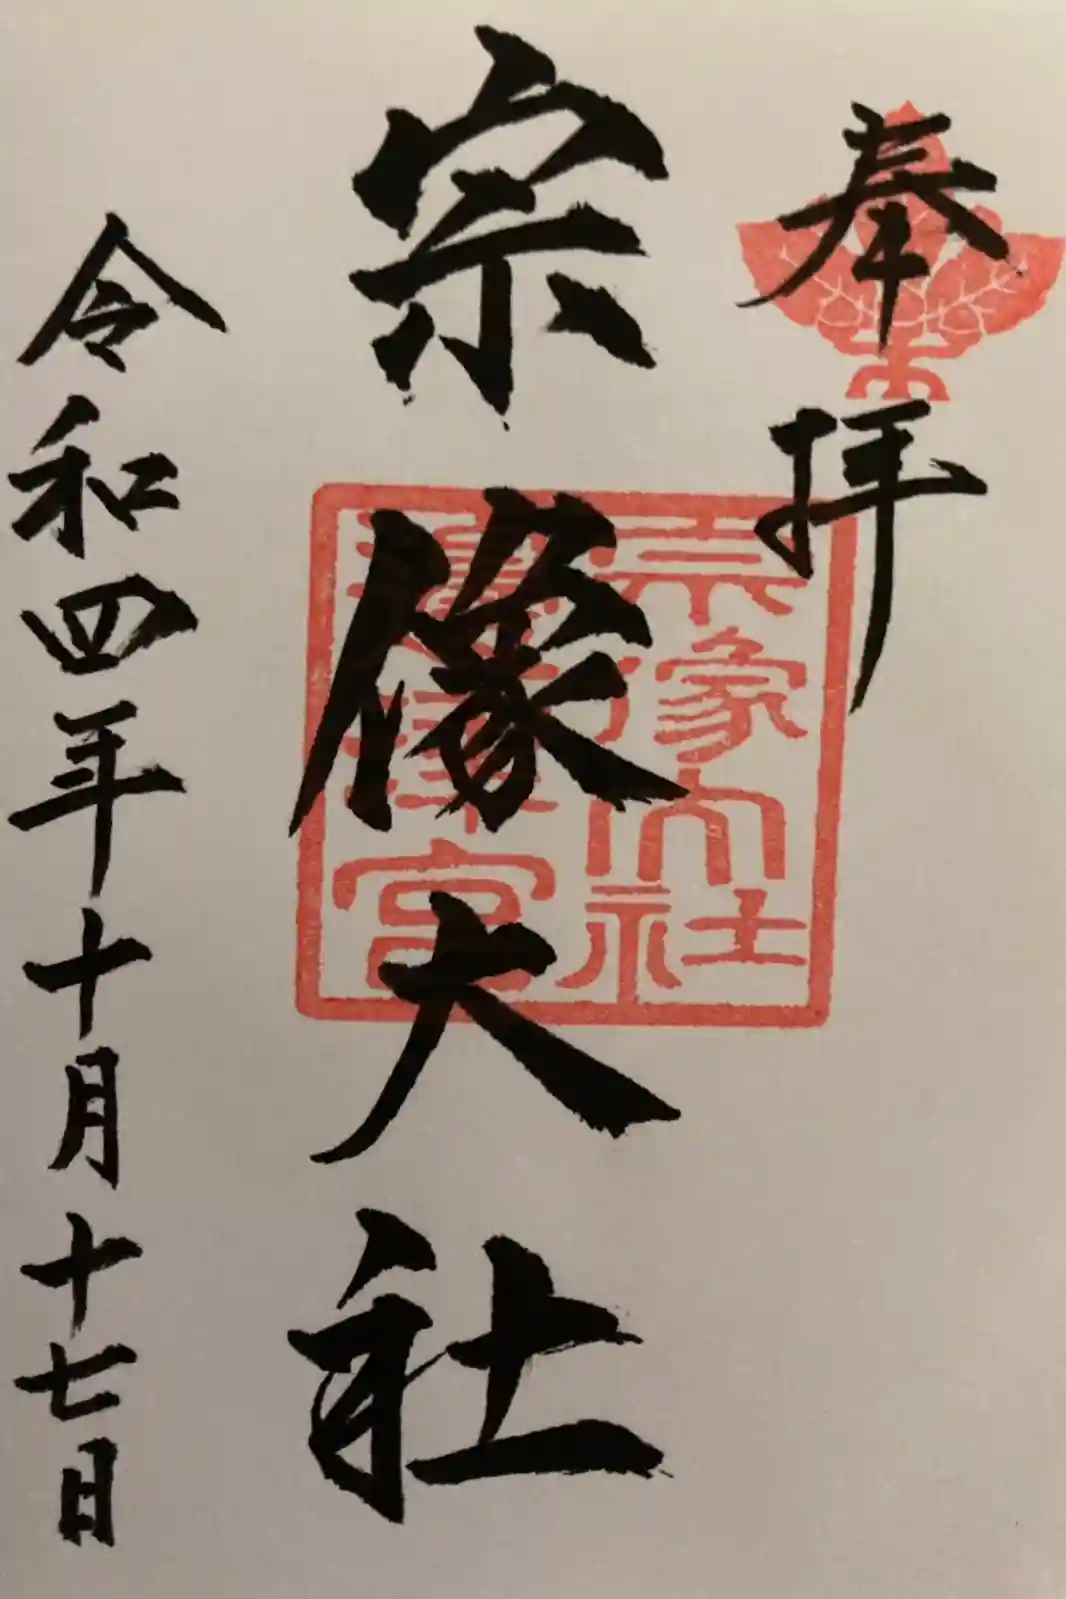 奉拝
宗像大社
宗像大社
邊津宮
令和四年十月十七日